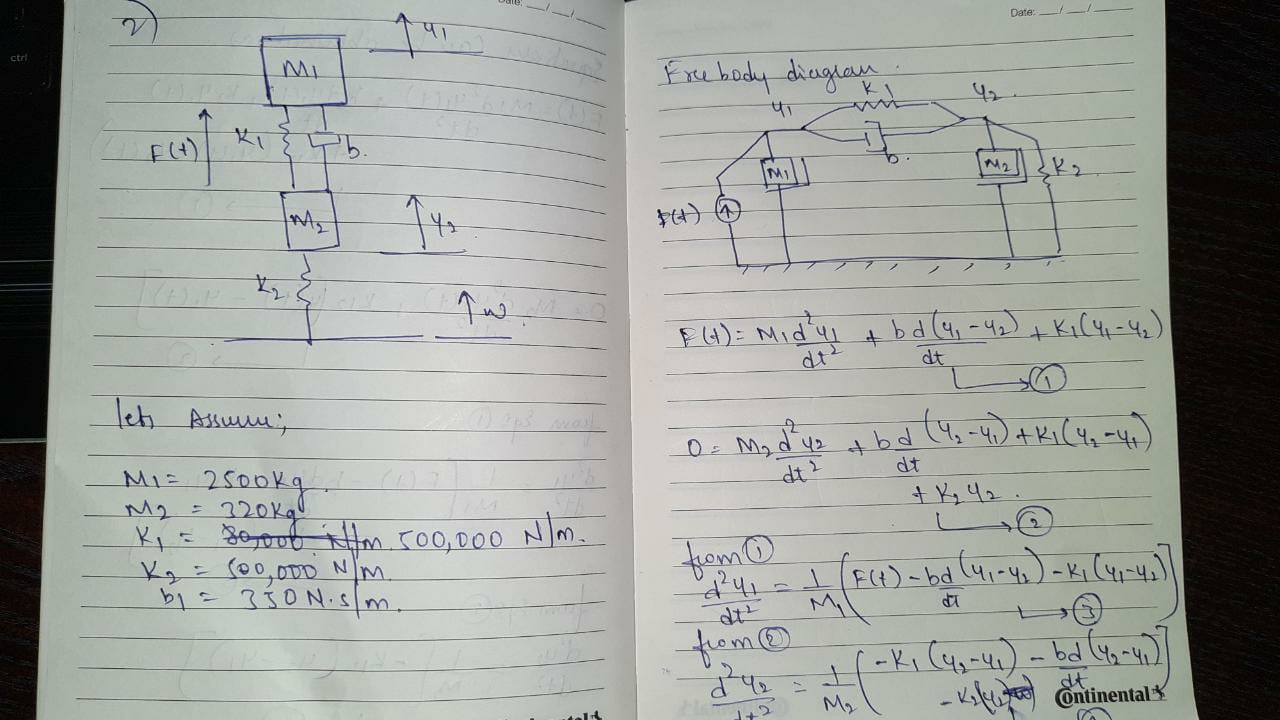 ctrl
2)
Date: __/__/__
y1
M1
F(t) K1 b.
M2
y2
K2
w.
lets Assume;
M1 = 2500Kg.
M2 = 320Kg
K1 = 80,000 N/m. 500,000 N/m.
K2 = 500,000 N/m.
b1 = 350 N.s/m.
Date: __/__/__
Free body diagram.
y1 K1 y2
M1 b. M2 K2
F(t)
F(t) = M1 d²y1/dt² + b d(y1-y2)/dt + K1(y1-y2)
→ ①
0 = M2 d²y2/dt² + b d/dt (y2-y1) + K1(y2-y1)
+ K2 y2.
→ ②
from ①
d²y1/dt² = 1/M1 (F(t) - bd/dt (y1-y2) - K1(y1-y2)]
→ ③
from ②
d²y2/dt² = 1/M2 (-K1(y2-y1) - bd/dt (y2-y1)]
- K2(y2
Continental